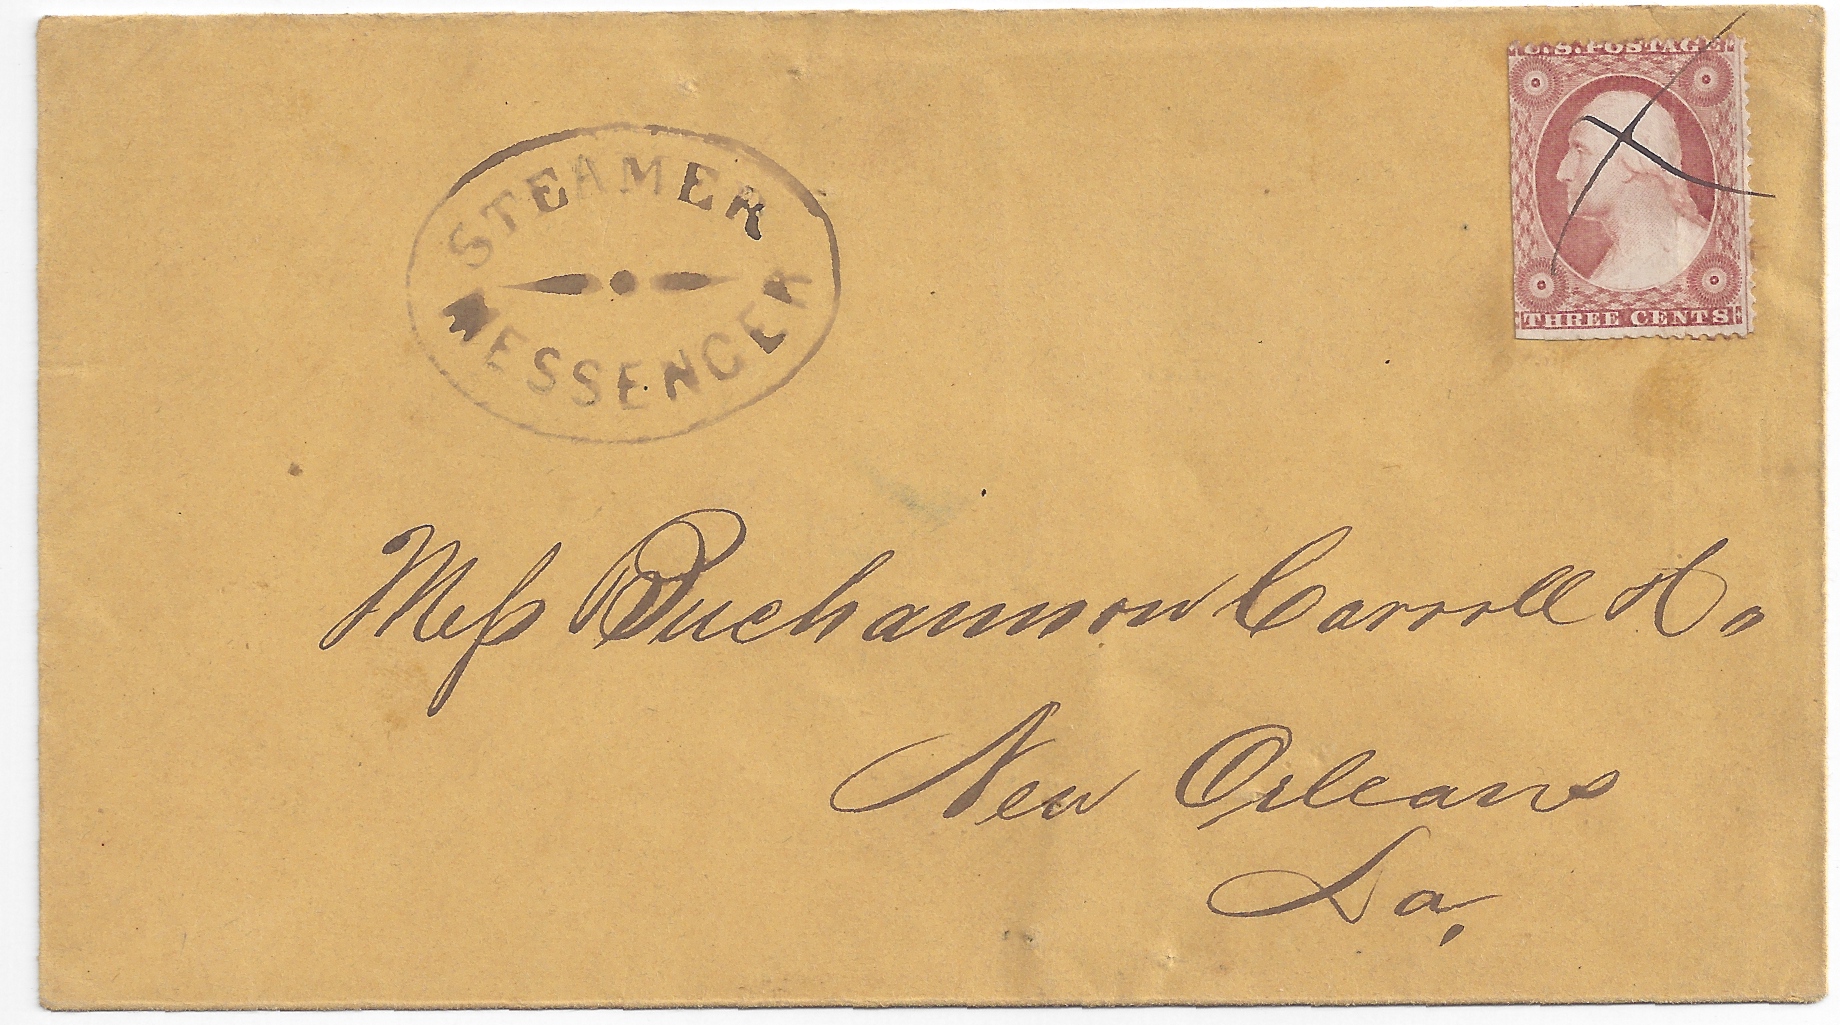 STEAMER
MESSENGER
U.S. POSTAGE
THREE CENTS
Mess Buchannon Carroll & Co
New Orleans
La,